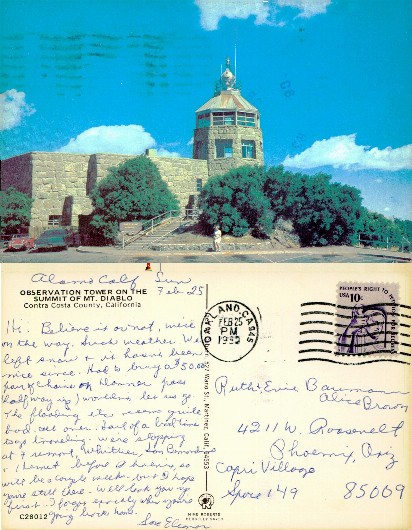 Alamo Calif Sun
Feb 25
OBSERVATION TOWER ON THE
SUMMIT OF MT. DIABLO
Contra Costa County, California
OAKLAND, CA 945
FEB 25
PM
PEOPLE'S RIGHT TO
USA 10c
Hi. Believe it or not, we're
on the way. Such weather. We
left snow & it hasn't been
nice since. Had to buy a $50.00
pair of chains on Donner pass
(half way up) wouldn't let us go
The flooding etc seems quite
bad all over. Sort of a bad time
to go traveling. We're stopping
at Fremont, Whittier, San Bernardino
& Hemet before
will be a couple week but I hope
you're still there. We'll look you up
first. I forget exactly when you're
going back home.
Eleanor
Ruth & Ernie Baumann
Alice Brown
4211 W. Roosevelt
Phoenix, Ariz
Capri Village
Space 149
85009
Martinez, Calif. 94553
C28012
MIKE ROBERTS
BERKELEY